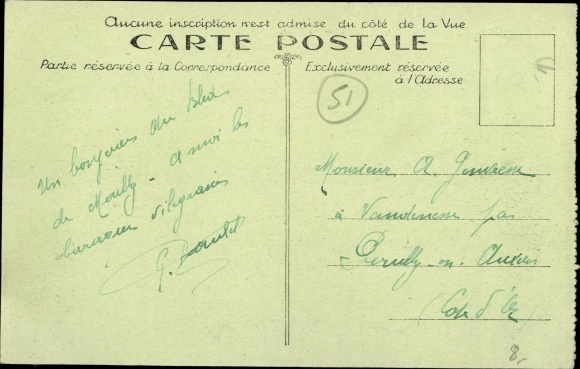 Aucune inscription n'est admise du côté de la Vue
CARTE POSTALE
Partie réservée à la Correspondance
Exclusivement réservée
à l'Adresse
51
Un bonjour du
de Mailly - à moi les
G.
Monsieur A.
à Vandenesse par
Pouilly-en-Auxois
(Cote d'Or)
8,